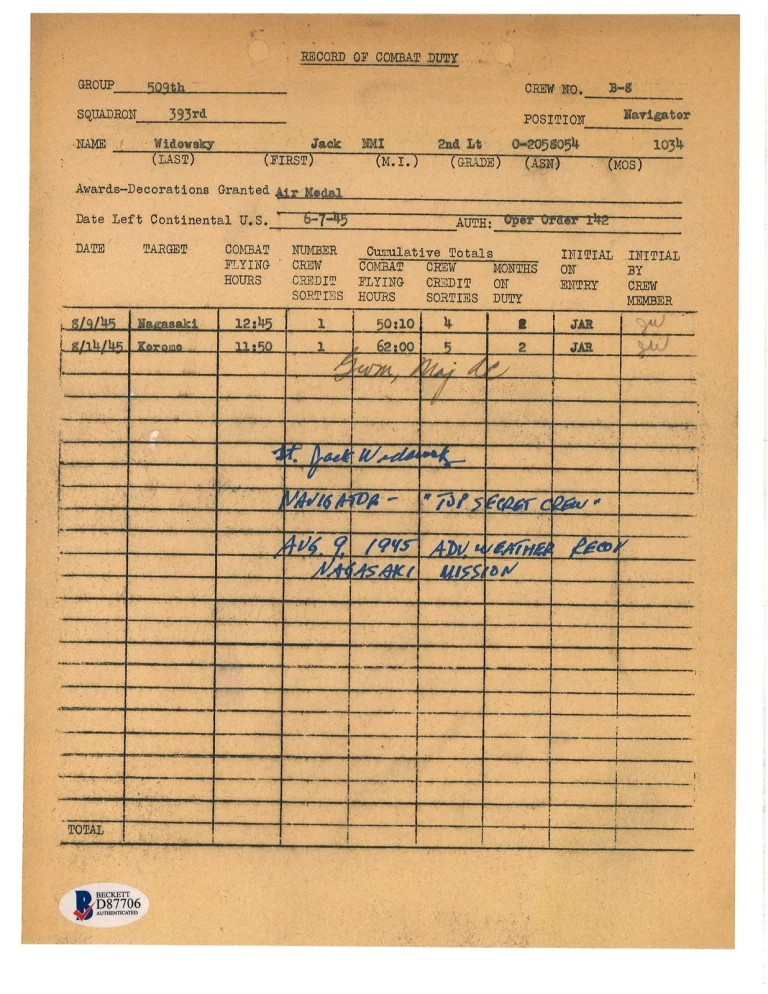 RECORD OF COMBAT DUTY
GROUP 509th CREW NO. B-8
SQUADRON 393rd POSITION Navigator
NAME Widowsky Jack NMI 2nd Lt O-2058054 1034
(LAST) (FIRST) (M.I.) (GRADE) (ASN) (MOS)
Awards-Decorations Granted Air Medal
Date Left Continental U.S. 6-7-45 AUTH: Oper Order 142
DATE TARGET COMBAT NUMBER Cumulative Totals INITIAL INITIAL
FLYING CREW COMBAT CREW MONTHS ON BY
HOURS CREDIT FLYING CREDIT ON ENTRY CREW
SORTIES HOURS SORTIES DUTY MEMBER
8/9/45 Nagasaki 12:45 1 50:10 4 2 JAR JW
8/14/45 Koromo 11:50 1 62:00 5 2 JAR JW
Maj
Lt. Jack Widowsky
NAVIGATOR - "TOP SECRET CREW"
AUG. 9, 1945 ADV. WEATHER RECON
NAGASAKI MISSION
TOTAL
BECKETT
D87706
AUTHENTICATED